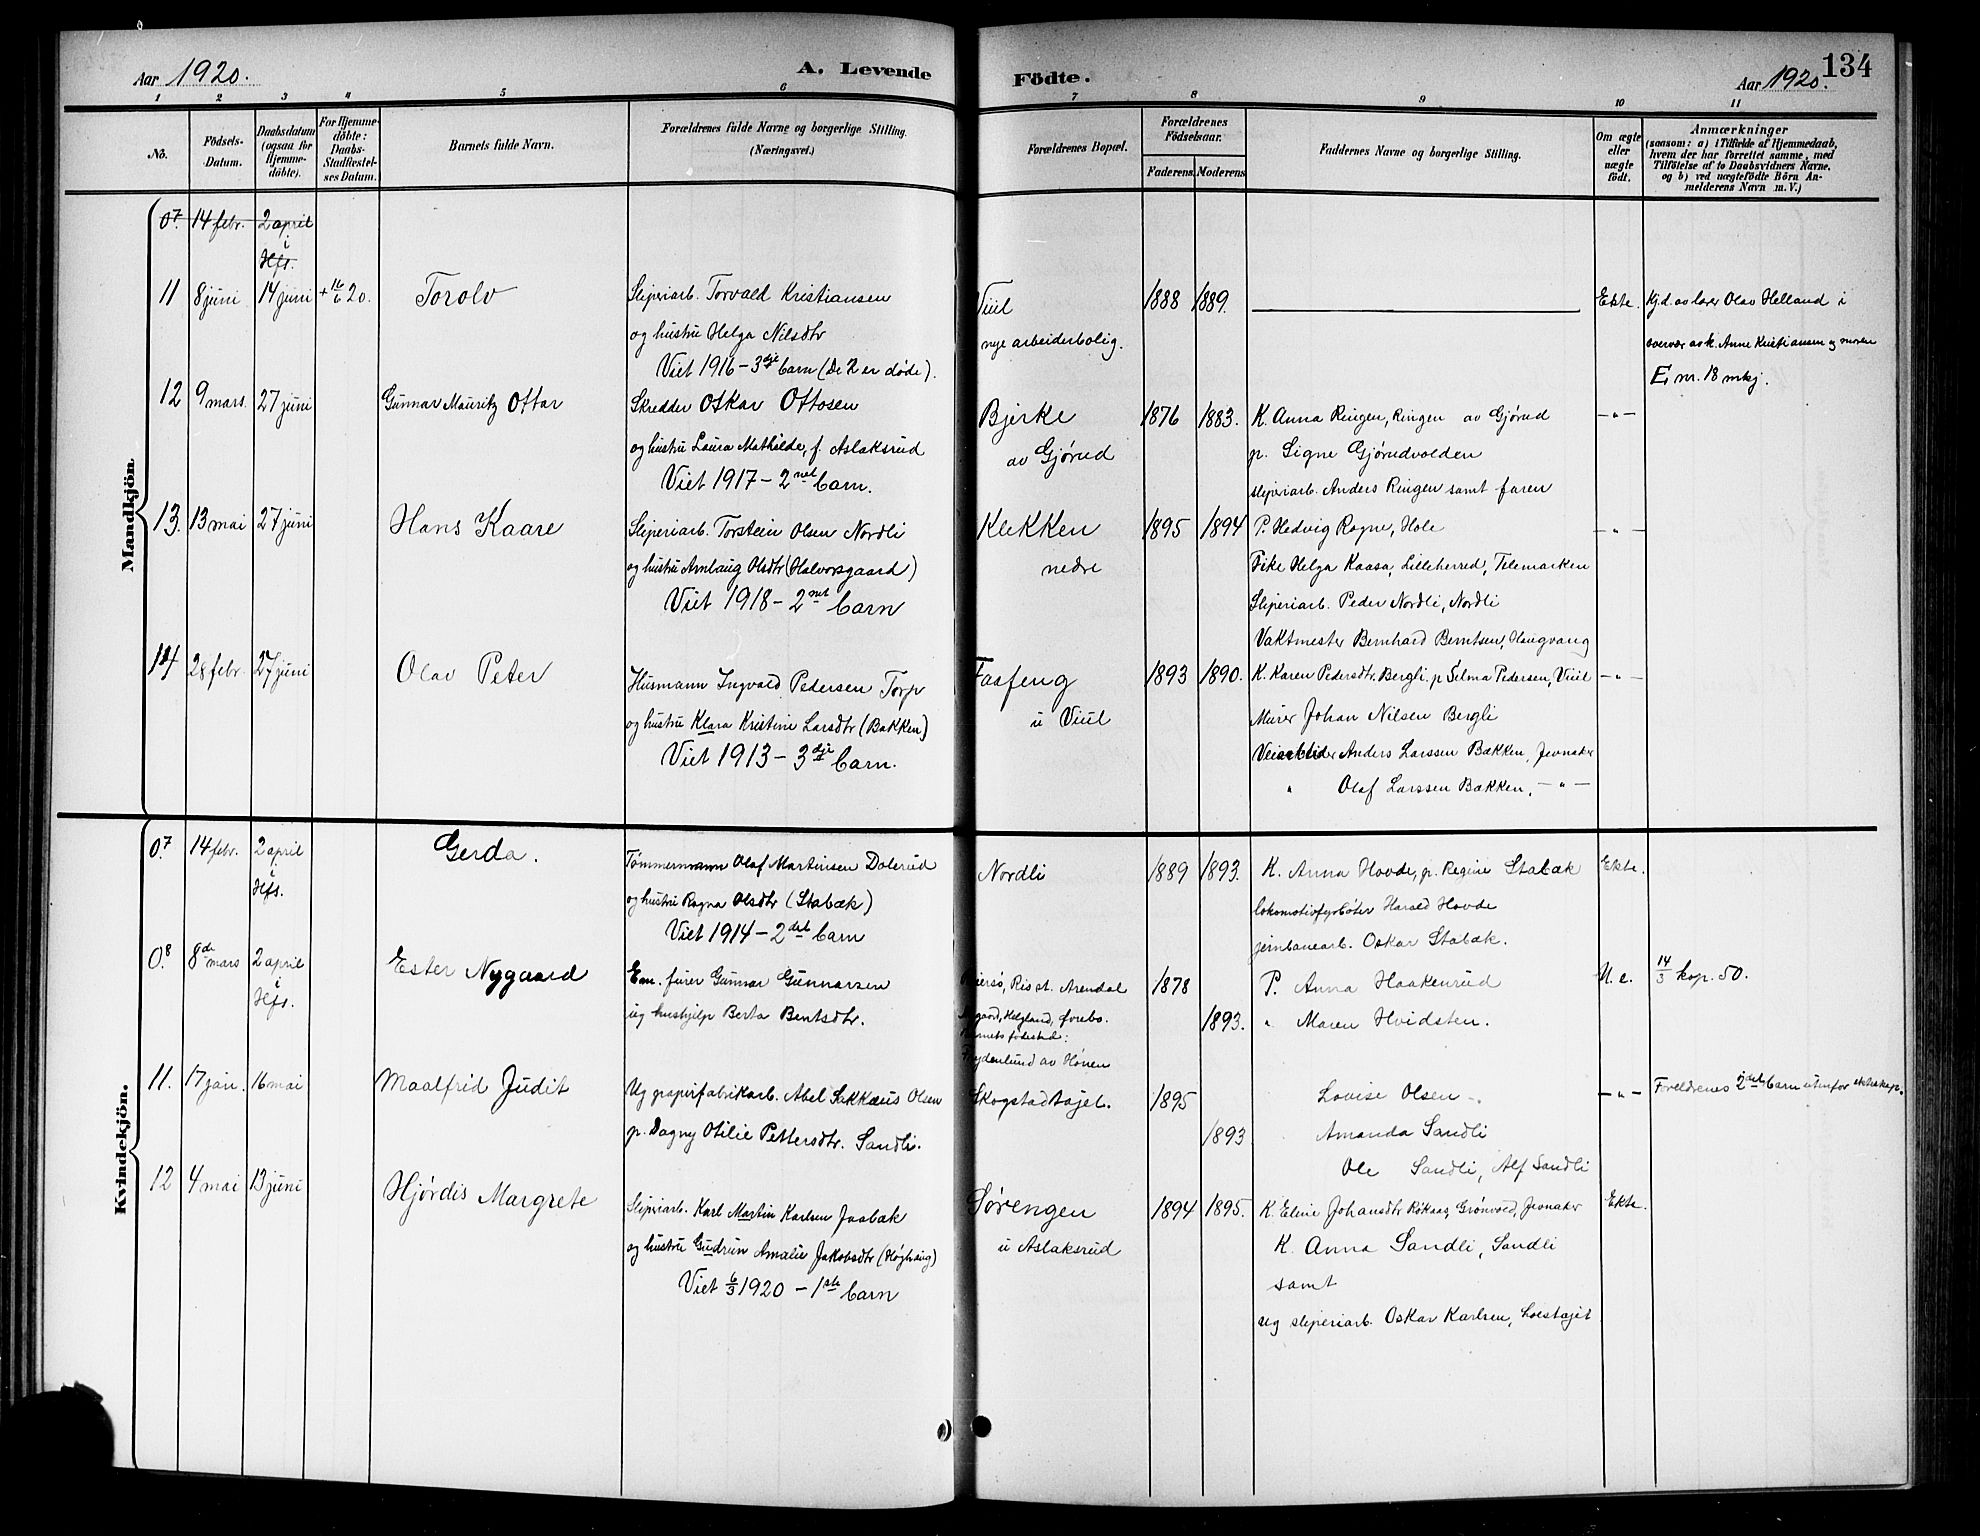 Aar 1920. A. Levende
Födte. Aar 1920. 134
1 2 3 4 5 6 7 8 9 10 11
No.
Födsels-
Datum.
Daabsdatum
(ogsaa for
Hjemme-
döbte).
For Hjemme-
döbte:
Daabs-
Stadfæstel-
ses Datum.
Barnets fulde Navn.
Forældrenes fulde Navne og borgerlige Stilling.
(Næringsvei.)
Forældrenes Bopæl.
Forældrenes
Födselsaar.
Faderens. Moderens.
Faddernes Navne og borgerlige Stilling.
Om ægte
eller
uægte
födt.
Anmærkninger
(saasom: a) i Tilfælde af Hjemmedaab,
hvem der har forrettet samme, med
Tilföielse af to Daabsvidners Navne,
og b) ved uægtefödte Börn An-
melderens Navn m. V.)
Mandkjön.
07. 14 febr. 2 april
i
Hfs.
11 8 juni 14 juni + 16/6 20. Torolv
Sliperiarb. Torvald Kristiansen
og hustru Helga Nilsdtr
Viet 1916 – 3dje barn (De 2 er døde).
Viul
nye arbeiderbolig.
1888 1889. Ekte.
Hj.d. av lærer Olav Helland i
overvær av k. Anne Kristiansen og moren
E nr. 18 mkj.
12 9 mars. 27 juni Gunnar Mauritz Ottar
Skredder Oskar Ottosen
og hustru Laura Mathilde, f. Aslaksrud
Viet 1917 – 2net barn.
Bjerke
av Gjørud
1876 1883.
K. Anna Ringen, Ringen av Gjørud
p. Signe Gjørudvolden
sliperiarb. Anders Ringen samt faren
– " –
13. 13 mai 27 juni Hans Kaare
Sliperiarb. Torstein Olsen Nordli
og hustru Amlaug Olsdtr (Halvorsgaard)
Viet 1918 – 2net barn
Klekken
nedre
1895 1894
P. Hedvig Rogne, Hole
Frke Helga Kaasa, Lilleherred, Telemarken
Sliperiarb. Peder Nordli, Nordli
Vaktmester Bernhard Berntsen, Haugvang
– " –
14 28 febr. 27 juni Olav Peter
Husmann Ingvald Pedersen Torp
og hustru Klara Kristine Larsdtr (Bakken)
Viet 1913 – 3dje barn.
Faafeng
u Viul
1893 1890.
K. Karen Pedersdtr. Bergli. p Selma Pedersen, Viul
Murer Johan Nilsen Bergli
Veiarbeider Anders Larssen Bakken, Jevnaker
" Olaf Larssen Bakken, – " –
– " –
Kvindekjön.
0.7 14 febr. 2 april
i
Hfs.
Gerda.
Tømmermann Olaf Martinsen Dolerud
og hustru Ragna Olsdtr (Stabæk)
Viet 1914 – 2det barn
Nordli
1889 1893.
K. Anna Hovde, p. Regine Stabæk
lokomotivfyrbøter Harald Hovde
jernbanearb. Oskar Stabæk.
Ekte.
0.8 8de mars 2 april
i
Hfs.
Ester Nygaard
Em. furer Gunnar Gunnarsen
ug hushjelp Berta Bentsdtr.
Ris st. Arendal
Helgland,
fødested:
Frydenlund av Hønen
1878
1893.
P. Anna Haakenrud
" Maren Hvidsten.
U. e. 14/3 kap. 50.
11. 17 jan. 16 mai Maalfrid Judit
Ug papirfabrikarb. Abel Sakkæus Olsen
p. Dagny Otilie Pettersdtr. Sandli.
Skogstadtajet.
1895
1893
Lovise Olsen –.
Amanda Sandli
Ole Sandli, Alf Sandli
– " – Foreldrenes 2det barn utenfor ekteskap.
12 4 mai 13 juni Hjørdis Margrete
Sliperiarb. Karl Martin Karlsen Jaabæk
og hustru Gudrun Amalie Jakobsdtr (Høghaug)
Viet 6/3 1920 – 1ste barn
Sørengen
u Aslaksrud
1894 1895.
K. Eline Johansdtr Røkaas, Grønvold, Jevnaker
K. Anna Sandli, Sandli
samt
ug sliperiarb. Oskar Karlsen, Loestajet
Ekte.